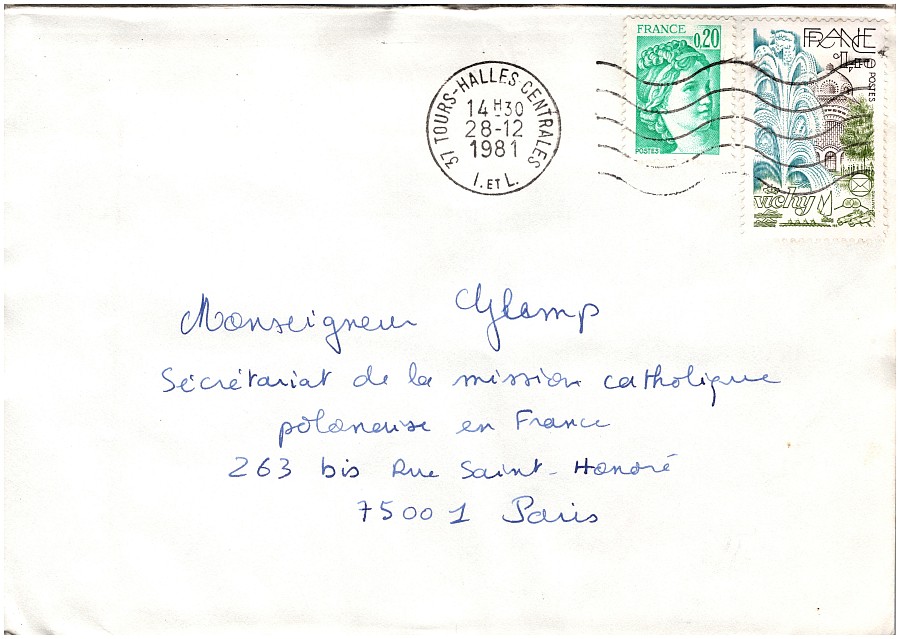 FRANCE
0,20
POSTES
FRANCE
1,40
POSTES
vichy
37 TOURS-HALLES CENTRALES
14H30
28-12
1981
I. ET L.
Monseigneur Glemp
Sécrétariat de la mission catholique
polonaise en France
263 bis Rue Saint-Honoré
75001 Paris